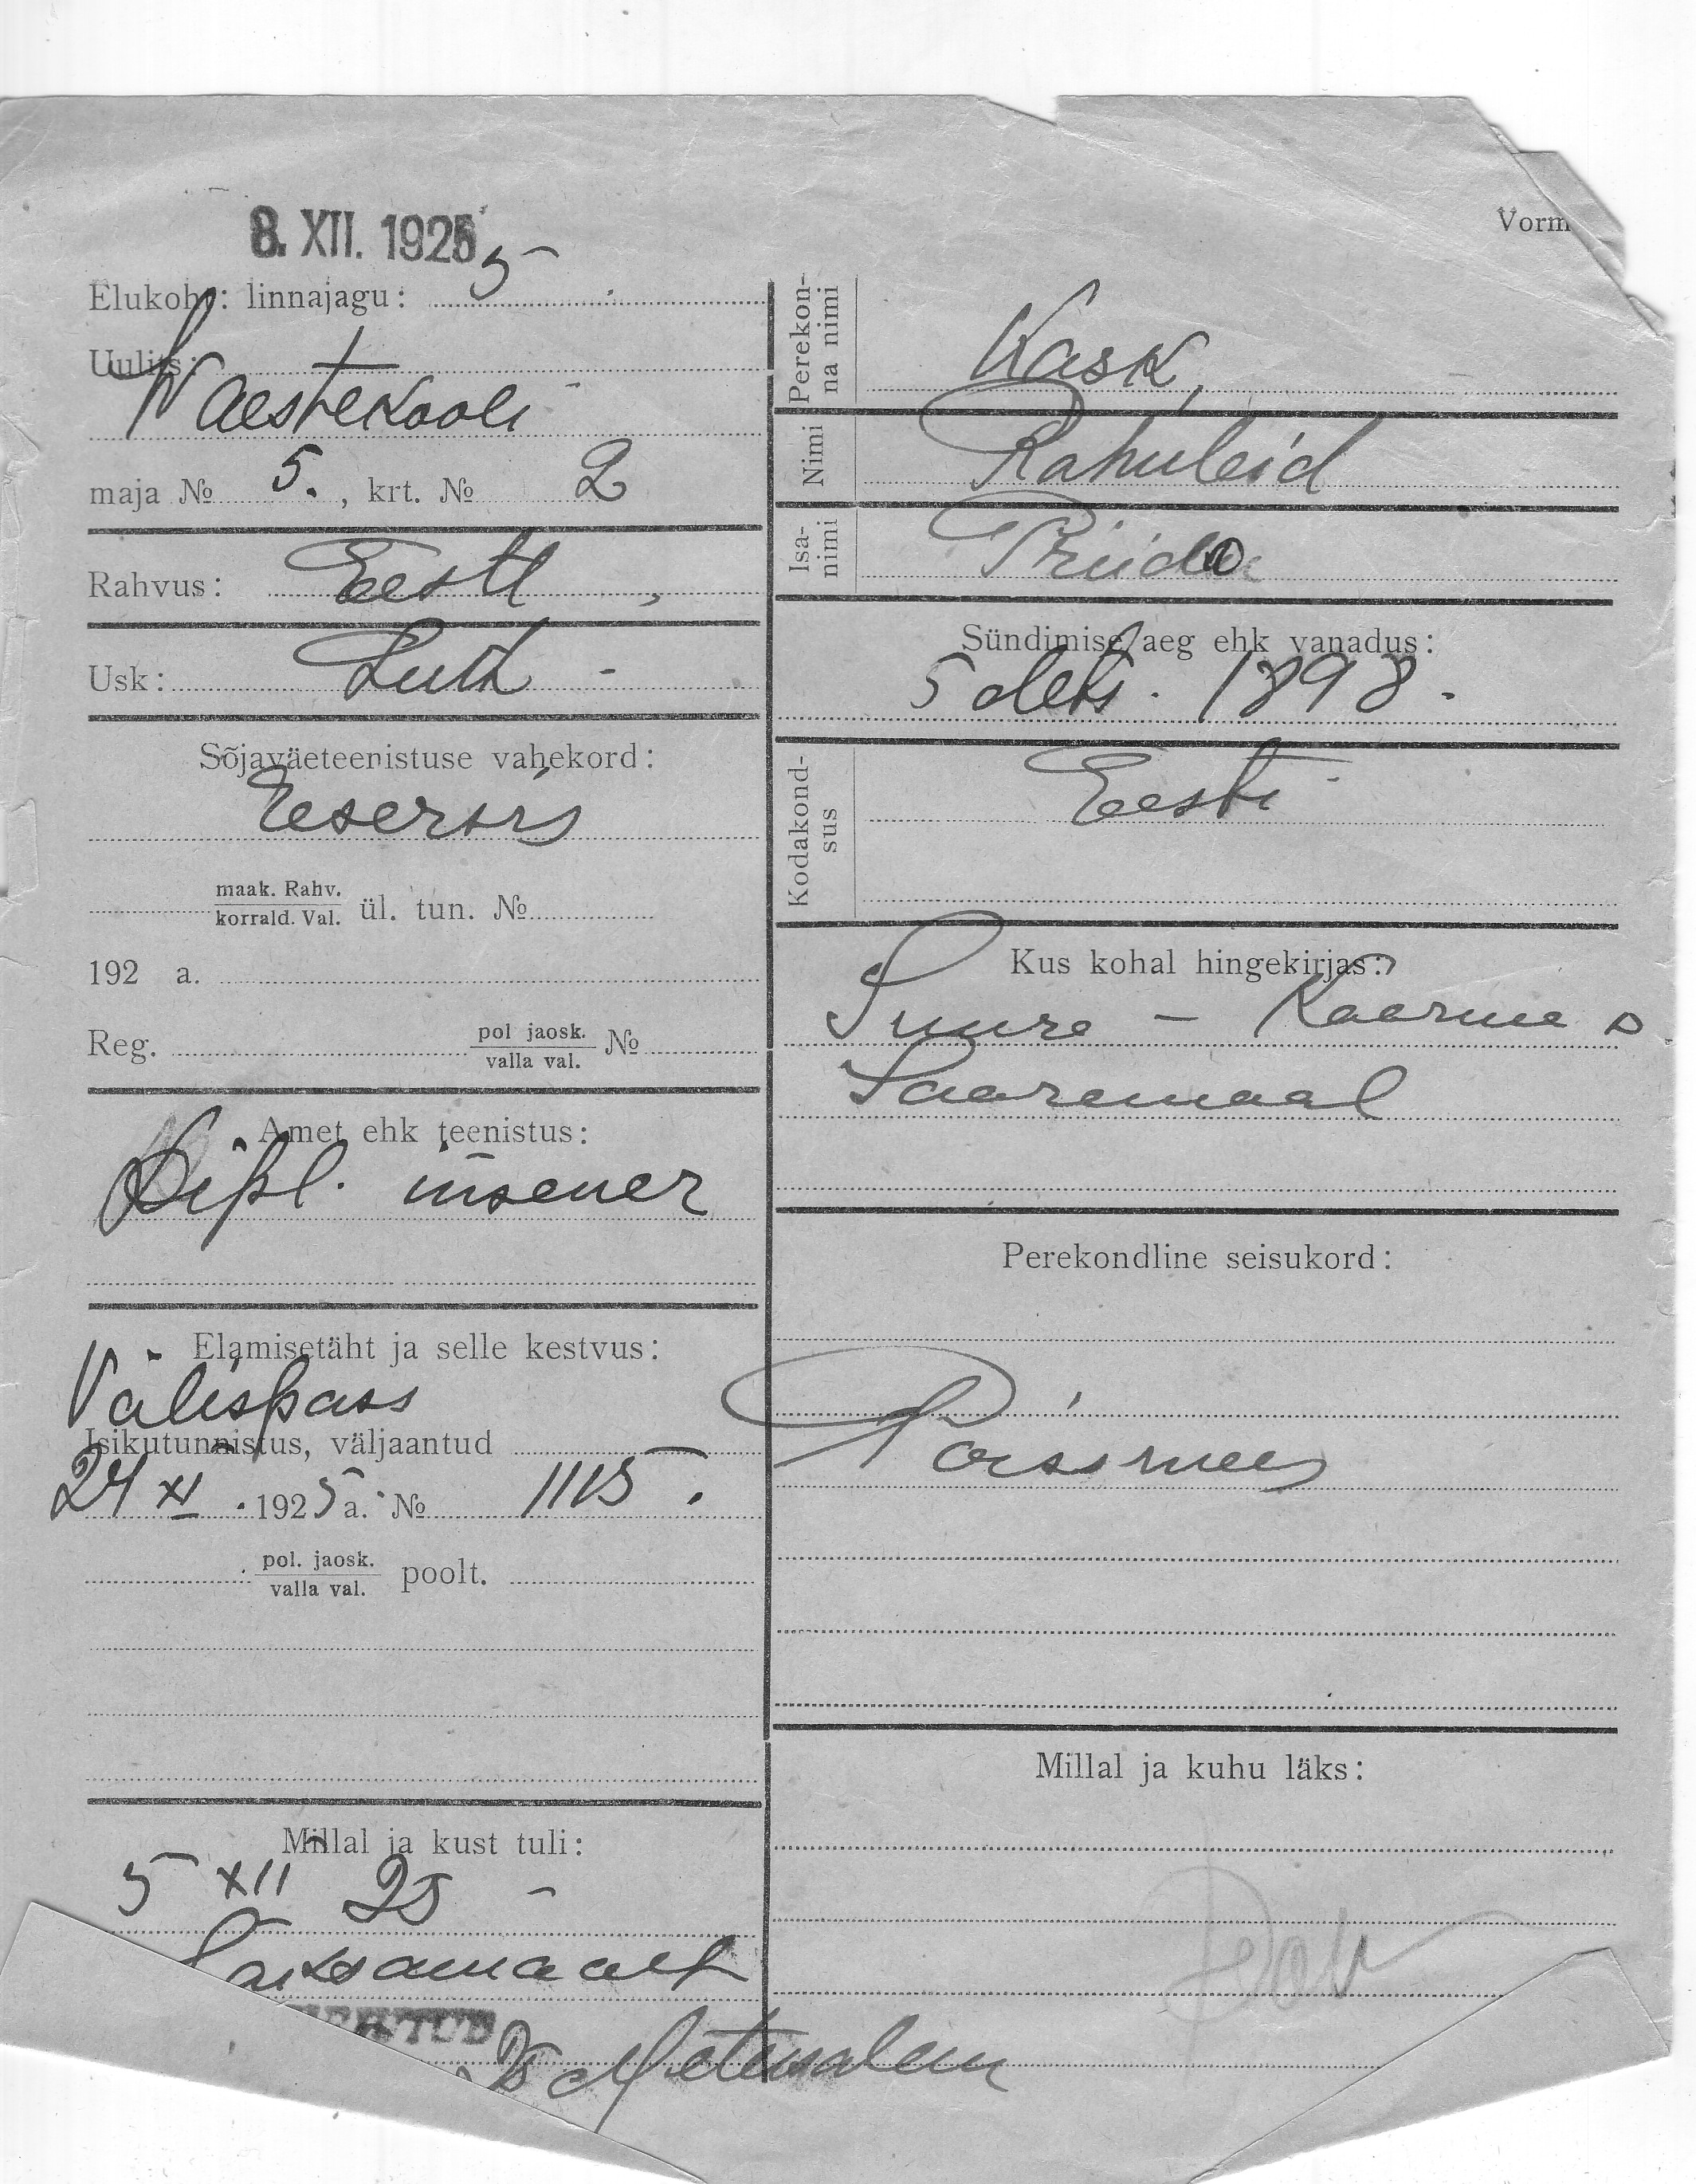 8. XII. 1925
Vorm
Elukoht: linnajagu: 5
Uulits:
Waestekooli
maja № 5. , krt. № 2
Rahvus: Eesti
Usk: Luth
Sõjaväeteenistuse vahekord:
maak. Rahv.
korrald. Val. ül. tun. №
192 a.
Reg. pol jaosk.
valla val. №
Amet ehk teenistus:
Dipl. insener
Elamisetäht ja selle kestvus:
Välispass
Isikutunnistus, väljaantud
24 XI . 1925 a. № 1115.
pol. jaosk.
valla val. poolt.
Millal ja kust tuli:
5 XII 25
Saksamaalt
Perekon-
na nimi
Kask,
Nimi
Rahuleid
Isa-
nimi
Priido
Sündimise aeg ehk vanadus:
5 dets. 1898.
Kodakond-
sus
Eesti
Kus kohal hingekirjas:
Suure - Kaarma
Saaremaal
Perekondline seisukord:
Poissmees
Millal ja kuhu läks: